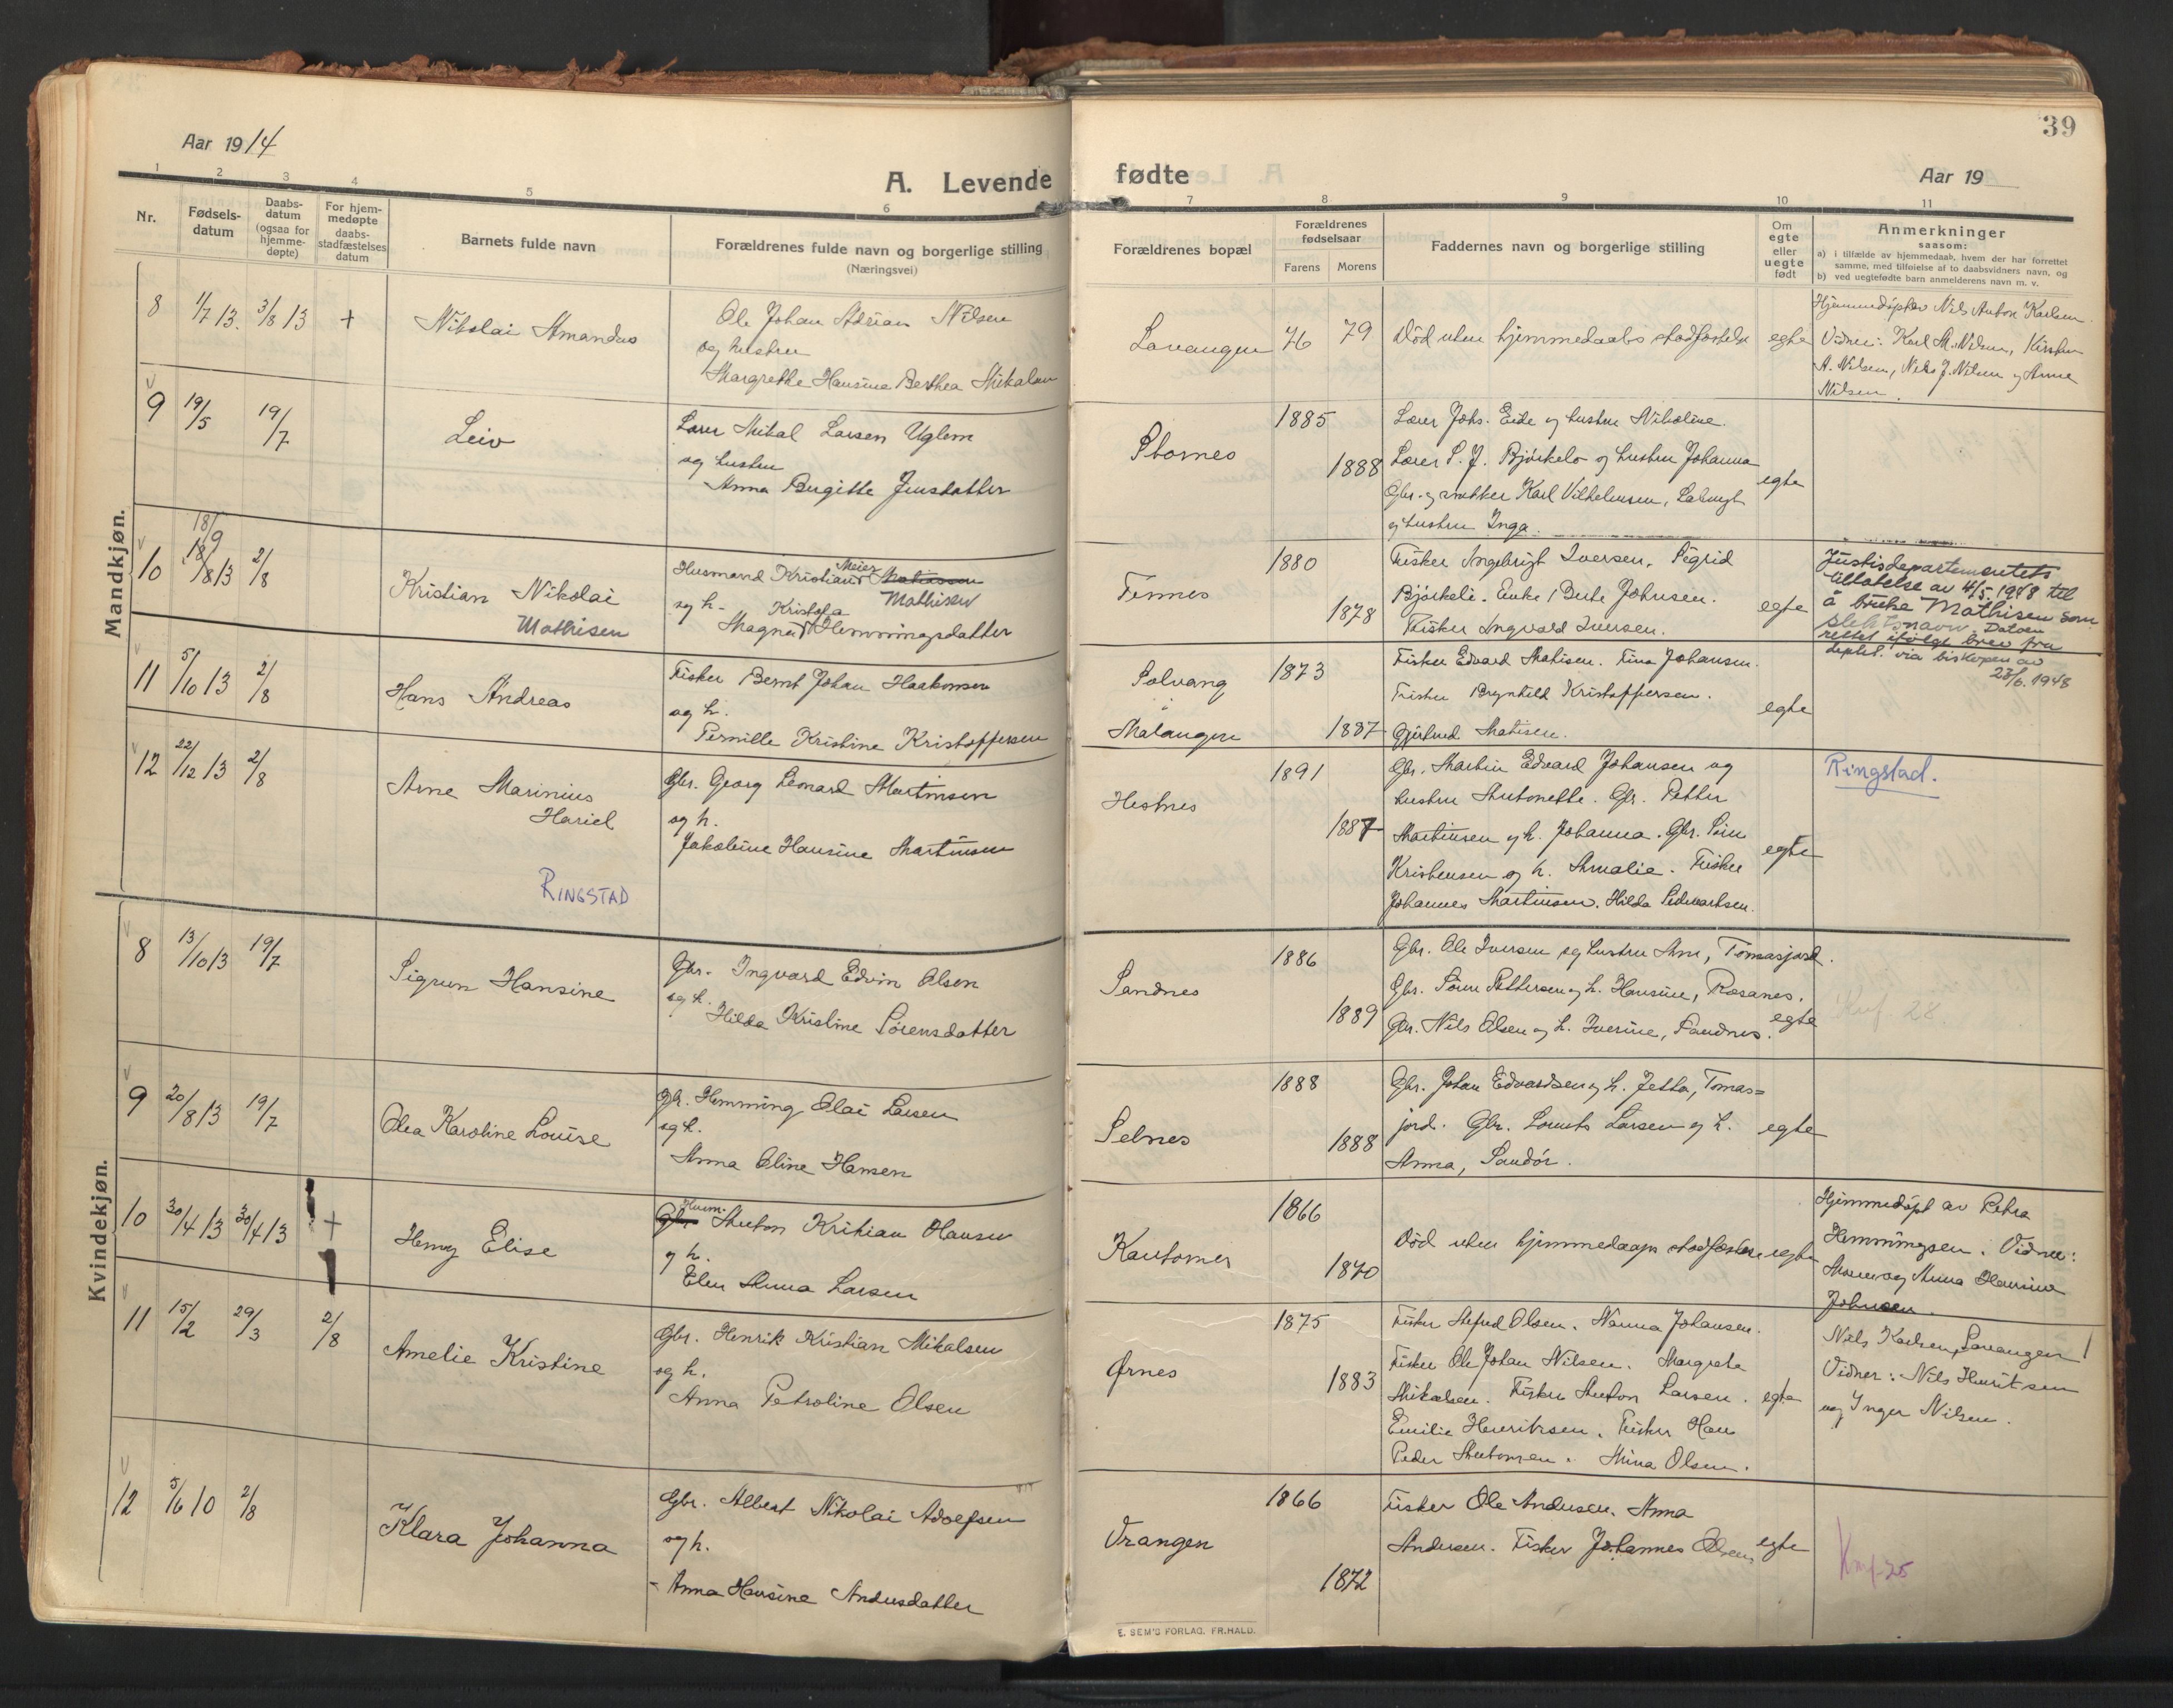 Aar 1914
A. Levende
1 2 3 4 5 6
Nr.
Fødsels-
datum
Daabs-
datum
(ogsaa for
hjemme-
døpte)
For hjem-
medøpte
daabs-
stadfæstelses
datum
Barnets fulde navn
Forældrenes fulde navn og borgerlige stilling
(Næringsvei)
Mandkjøn.
8 1/7 13. 3/8 13 + Nikolai Amandus
Ole Johan Adrian Nilsen
og hustru
Margrethe Hansine Berthea Mikalsen
9 19/5 19/7 Leiv
Lærer Mikal Larsen Uglem
og hustru
Anna Birgitte Jensdatter
18/9
10 18/8 13 2/8 Kristian Nikolai
Mathisen
Husmand Kristian Meier Mathiassen
Mathisen
og h. Kristofa
Magna Hemmingsdatter
11 5/10 13 2/8 Hans Andreas
Fisker Bernt Johan Haakonsen
og h.
Pernille Kristine Kristoffersen
12 22/12 13 2/8 Arne Marinius
Hariel
RINGSTAD
Gbr. Georg Leonard Martinsen
og h.
Jakobine Hansine Martinsen
Kvindekjøn.
8 13/10 13 19/7 Sigrun Hansine
Gbr. Ingvard Edvin Olsen
og h.
Hilda Kristine Sørensdatter
9 20/8 13 19/7 Olea Karoline Louise
Gbr. Hemming Olai Larsen
og h.
Anna Oline Hansen
10 30/4 13 30/4 13 + Henny Elise
Gbr. Husm. Anton Kritian Hansen
og h.
Elen Anna Larsen
11 15/2 29/3 2/8 Amelie Kristine
Gbr. Henrik Kristian Mikalsen
og h.
Anna Petroline Olsen
12 5/6 10 2/8 Klara Johanna
Gbr. Albert Nikolai Adolfsen
og h.
Anna Hansine Andersdatter
39
fødte
Aar 19
7 8 9 10 11
Forældrenes bopæl
Forældrenes
fødselsaar
Farens Morens
Faddernes navn og borgerlige stilling
Om
egte
eller
uegte
født
Anmerkninger
saasom:
a) i tilfælde av hjemmedaab, hvem der har forrettet
samme, med tilføielse af to daabsvidners navn, og
b) ved uegtefødte barn anmelderens navn m. v.
Lavangen 76 79 Død uten hjemmedaabs stadfæstelse egte
Hjemmedøpt av Nils Anton Karlsen.
Vidner: Karl M. Nilsen, Kirsten
A. Nilsen, Nils J. Nilsen og Anna
Nilsen.
Stornes 1885 1888 egte
Lærer Johs. Eide og hustru Nikoline.
Lærer S. J. Bjørkelo og hustru Johanna
Gbr. og snekker Karl Vilhelmsen,
og hustru Inga.
Tennes 1880 1878 egte
Fisker Ingebrigt Iversen. Sigrid
Bjørkeli. Enke Berte Johnsen.
Fisker Ingvald Iversen.
Justisdepartementets
tillatelse av 4/5. 1948 til
å bruke Mathisen som
slektsnavn. Datoen
rettet ifølge brev fra
deptet. via biskopen av
23/6. 1948
Solvang
i
Malangen 1873 1887 egte
Fisker Edvard Matisen. Tina Johansen.
Fisker Brynhild Kristoffersen.
Gjertrud Matisen.
Hestnes 1891 1887 egte
Gbr. Martin Edvard Johansen og
hustru Antonette. Gbr. Petter
Martinsen og h. Johanna. Gbr. Sørn
Kristensen og h. Amalie. Fisker
Johannes Martinsen. Hilda
Ringstad.
Sandnes 1886 1889 egte
Gbr. Ole Iversen og hustru Ane, Tomasjord.
Gbr. Sørn Pettersen og h. Hansine, Rosanes.
Gbr. Nils Olsen og h. Iverine, Sandnes.
Knf. 28
Selnes 1888 1888 egte
Gbr. Johan Edvardsen og h. Jetta, Tomas=
jord. Gbr. Lornts Larsen og h.
Anna, Sandør.
Kantornes 1866 1870 Død uten hjemmedaaps stadfæstelse egte
Hjemmedøpt av Petra
Hemmingsen. Vidner:
Moren og Anna Hansine
Johnsen.
Ørnes 1875 1883 egte
Fisker Alfred Olsen. Nanna Johansen.
Fisker Ole Johan Nilsen. Margrete
Mikalsen. Fisker Anton Larsen.
Emilie Henriksen. Fisker Hans
Peder Antonsen. Mina Olsen.
Nils Karlsen, Lavangen
Vidner: Nils Henriksen
og Inger Nilsen.
Vrangen 1866 1872 egte
Fisker Ole Andersen. Anna
Andersen. Fisker Johannes Olsen
Knf. 25
E. SEM'S FORLAG. FR.HALD.